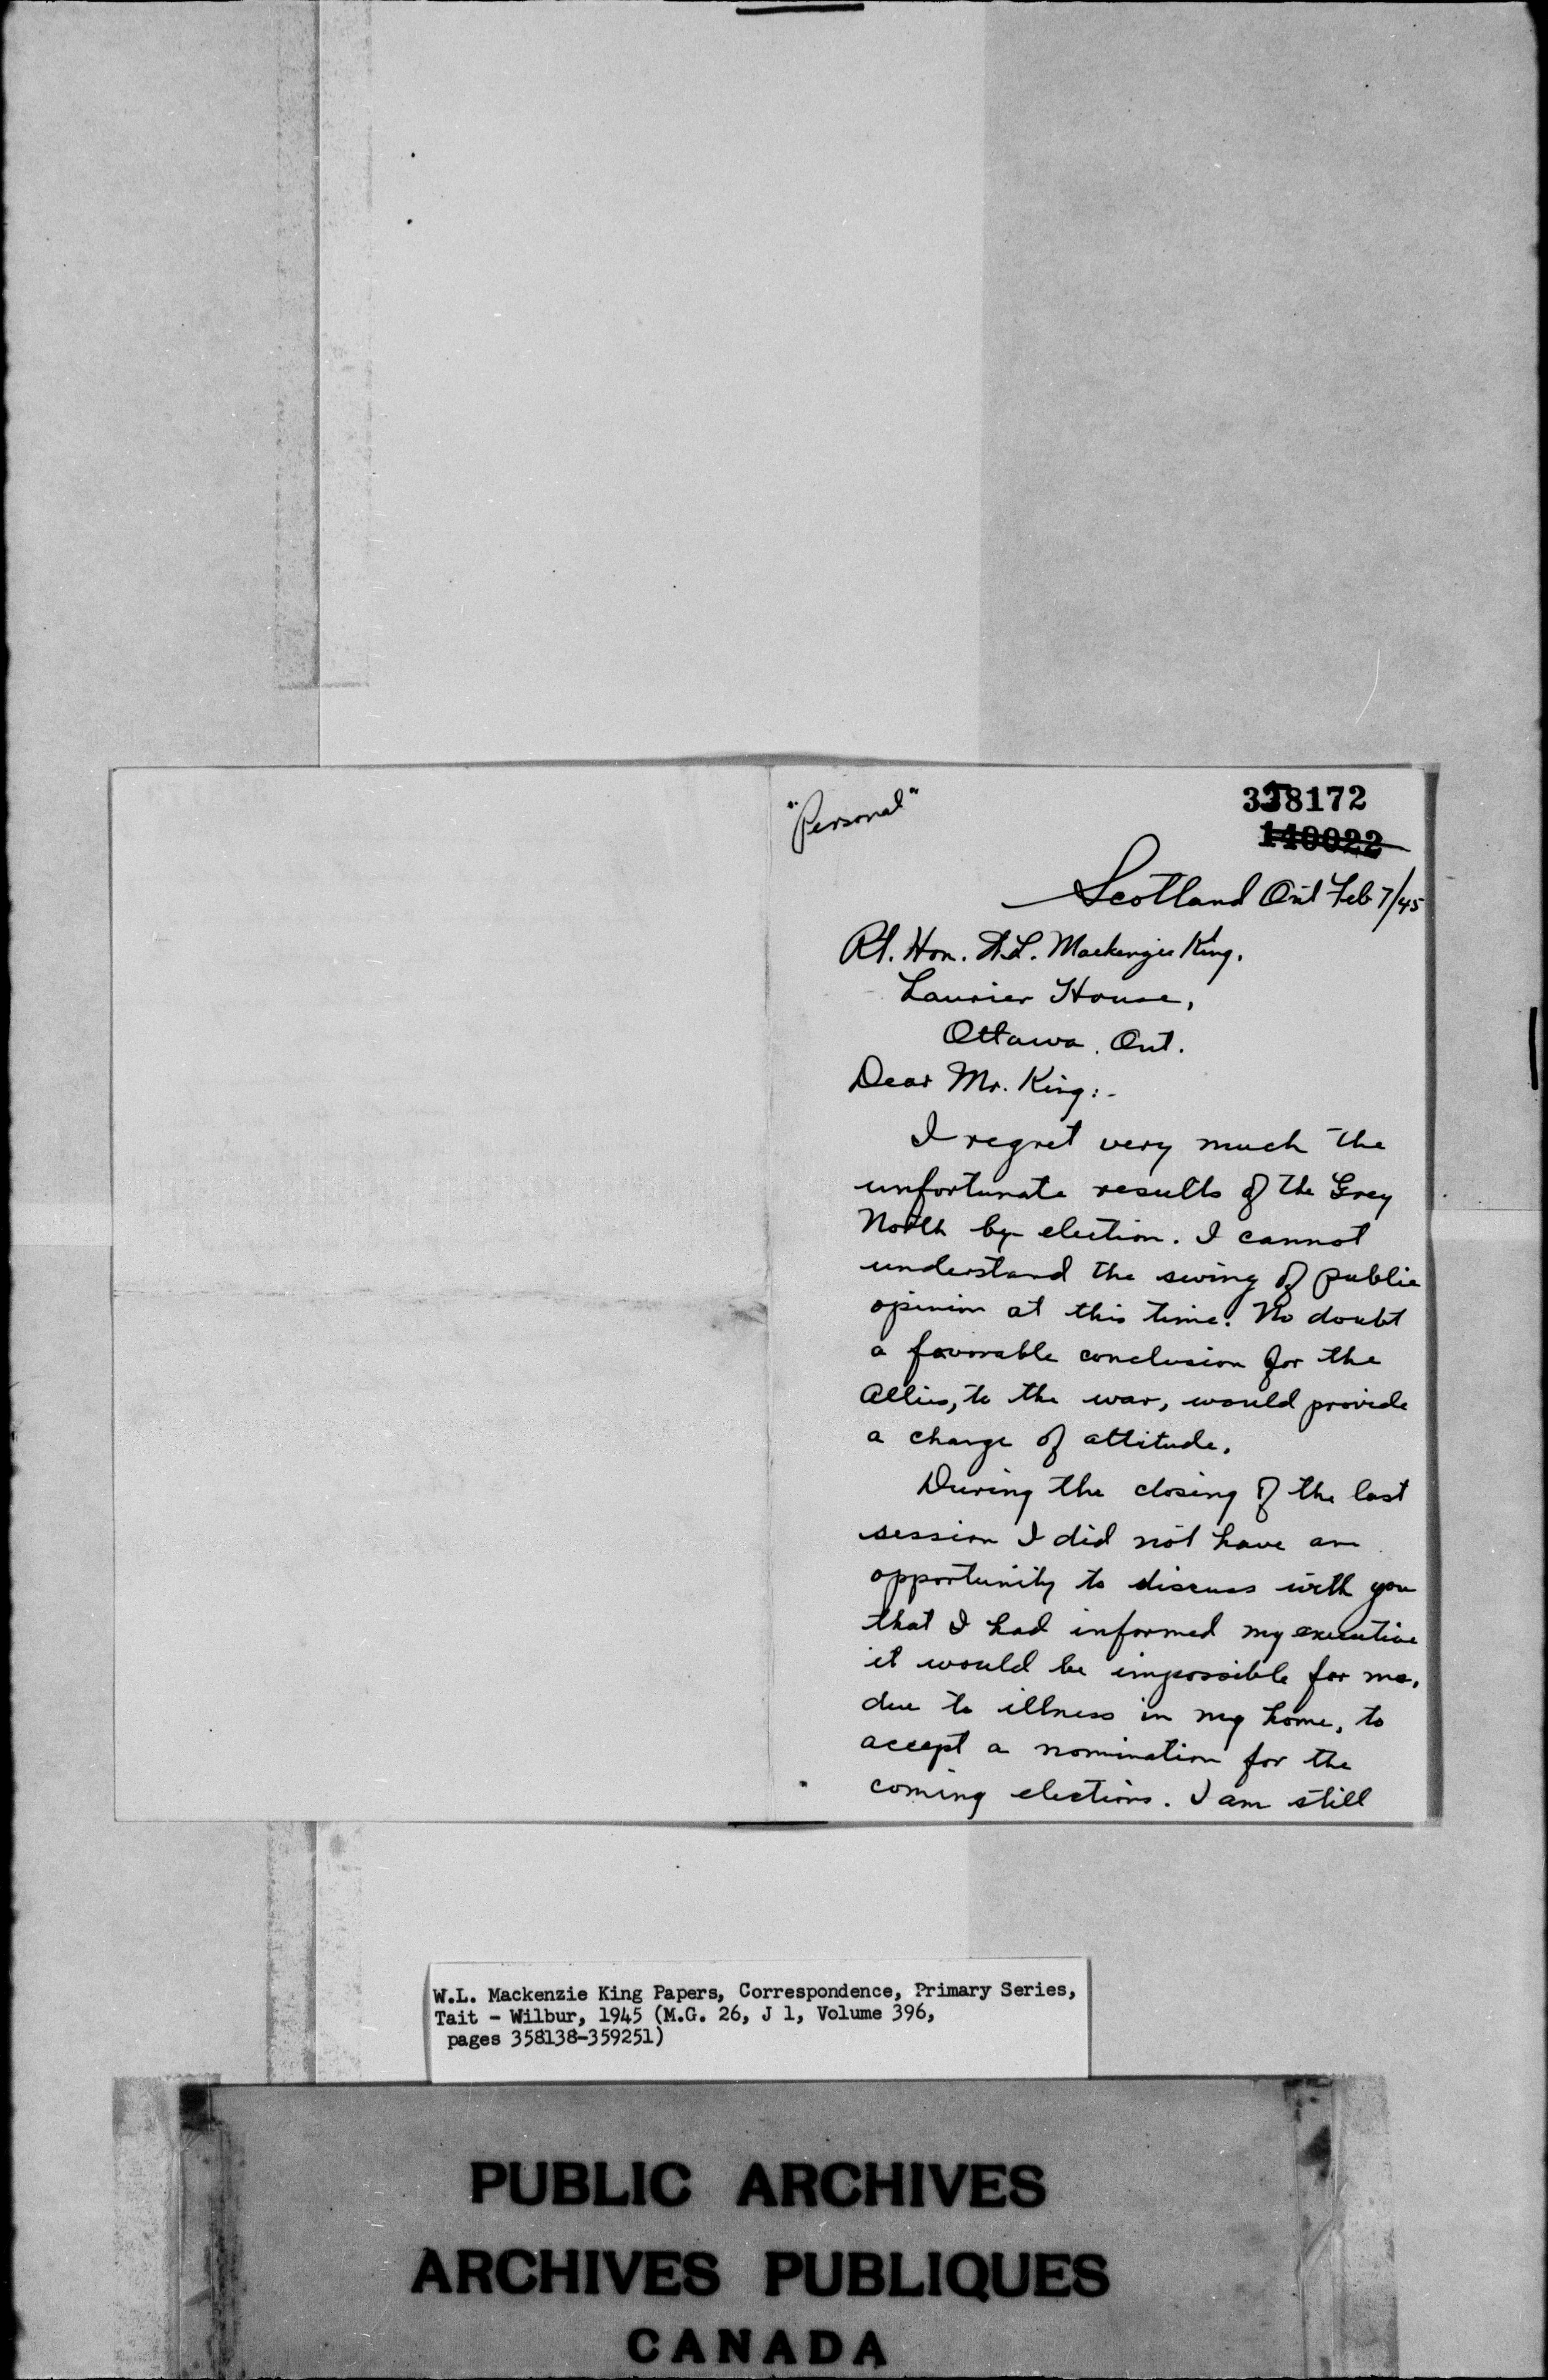 "Personal"
358172
140022
Scotland Ont Feb 7/45
Rt. Hon. W.L. Mackenzie King,
Laurier House,
Ottawa, Ont.
Dear Mr. King:-
I regret very much the
unfortunate results of the Grey
North by-election. I cannot
understand the swing of public
opinion at this time. No doubt
a favorable conclusion for the
Allies, to the war, would provide
a change of attitude.
During the closing of the last
session I did not have an
opportunity to discuss with you
that I had informed my executive
it would be impossible for me,
due to illness in my home, to
accept a nomination for the
coming elections. I am still
W.L. Mackenzie King Papers, Correspondence, Primary Series,
Tait - Wilbur, 1945 (M.G. 26, J 1, Volume 396,
pages 358138-359251)
PUBLIC ARCHIVES
ARCHIVES PUBLIQUES
CANADA